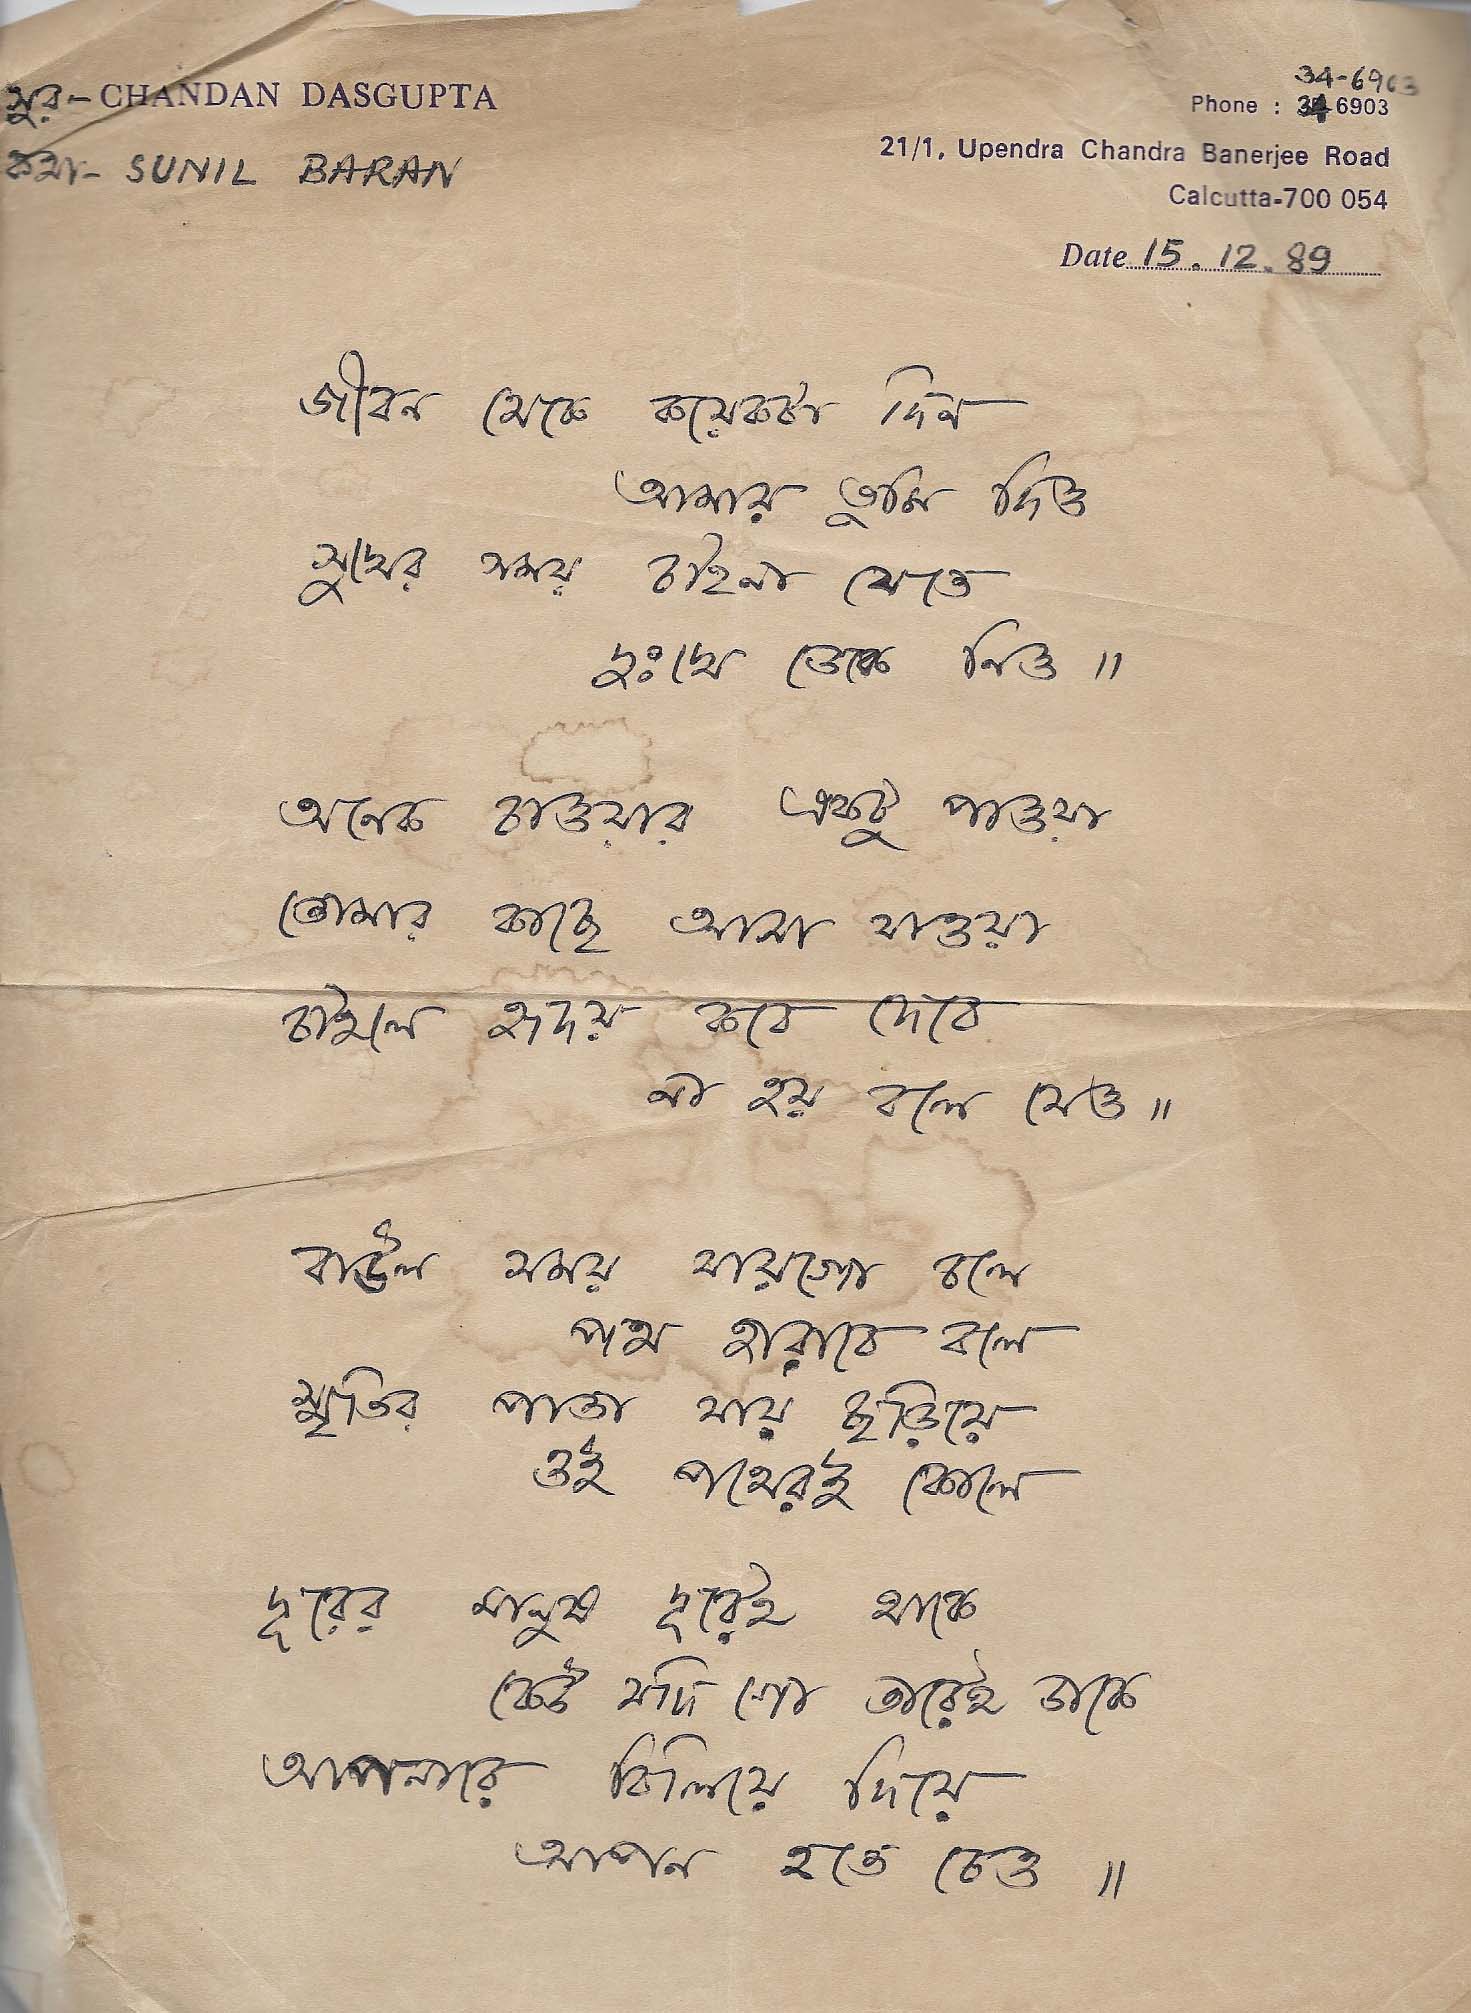 সুর- CHANDAN DASGUPTA
কথা- SUNIL BARAN
34-6903
Phone : 34 6903
21/1, Upendra Chandra Banerjee Road
Calcutta-700 054
Date 15.12.89
জীবন থেকে কয়েকটা দিন
আমায় তুমি দিও
সুখের সময় চাইনা যেতে
দুঃখে ডেকে নিও ॥
অনেক চাওয়ার একটু পাওয়া
তোমার কাছে আসা যাওয়া
চাইলে হৃদয় কবে দেবে
না হয় বলে যেও ॥
বাউল সময় যায়গো চলে
পথ হারাবে বলে
স্মৃতির পাতা যায় ছড়িয়ে
ওই পথেরই কোলে
দূরের মানুষ দূরেই থাকে
কেউ যদি গো তারেই ডাকে
আপনারে বিলিয়ে দিয়ে
আপন হতে চেও ॥